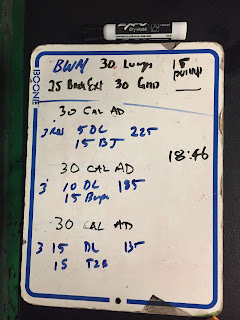 EXPO
BOONE
BWM 30 Lunges 15
25 Back Ext 30 GMD
30 Cal AD
3 RDS 5 DL 225
15 BJ
18:46
30 CAL AD
3 10 DL 185
15 Burps
30 Cal AD
3 15 DL 135
15 T2B